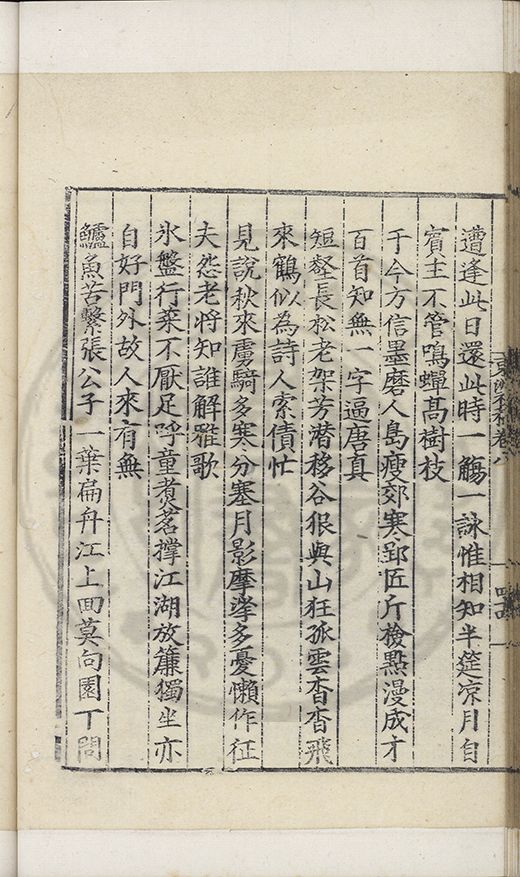 遭逢此日還此時一觴一詠惟相知半筵凉月自
賓主不管鳴蟬髙樹枝
于今方信墨磨人島瘦郊寒郢匠斤檢點漫成才
百首知無一字逼唐真
短壑長松老架芳潜移谷很與山狂孤雲杳杳飛
來鶴似為詩人索債忙
見說秋來虜騎多寒分塞月影摩挲多憂懶作征
夫怨老將知誰解雅歌
氷盤行菜不厭足呼童煮茗撑江湖放簾獨坐亦
自好門外故人來有無
鱸魚苦繫張公子一葉扁舟江上回莫向園丁問